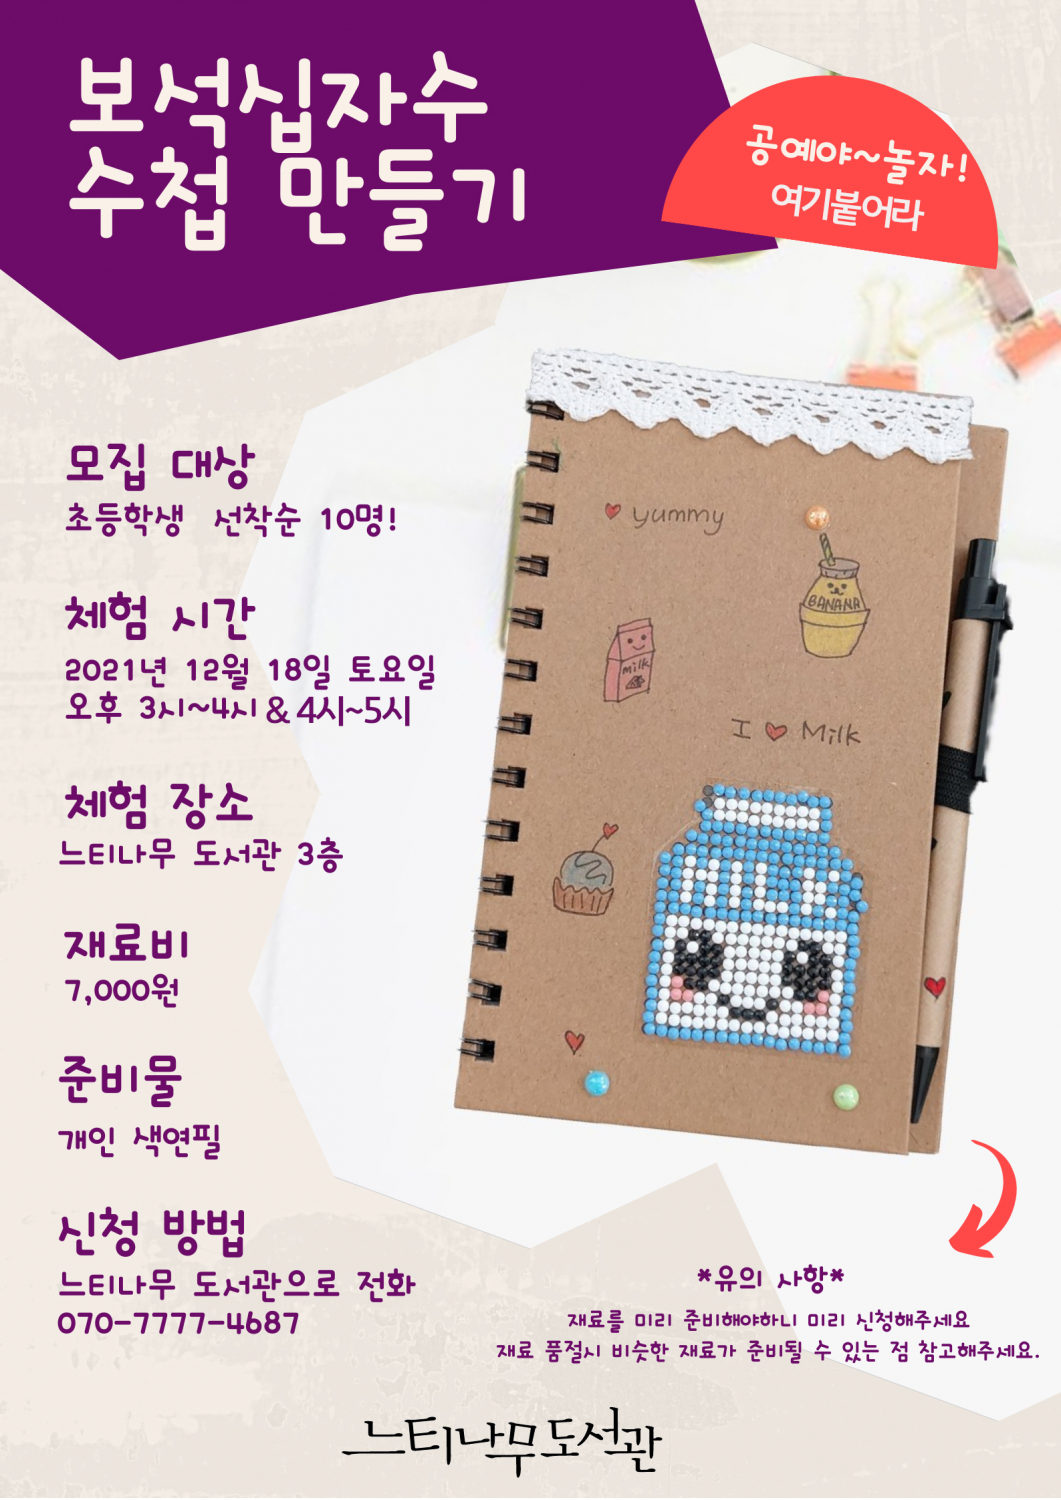 보석십자수
수첩 만들기
공예야~놀자!
여기붙어라
모집 대상
초등학생 선착순 10명!
체험 시간
2021년 12월 18일 토요일
오후 3시~4시 & 4시~5시
체험 장소
느티나무 도서관 3층
재료비
7,000원
준비물
개인 색연필
신청 방법
느티나무 도서관으로 전화
070-7777-4687
yummy
BANANA
milk
I Milk
MILK
*유의 사항*
재료를 미리 준비해야하니 미리 신청해주세요
재료 품절시 비슷한 재료가 준비될 수 있는 점 참고해주세요.
느티나무도서관